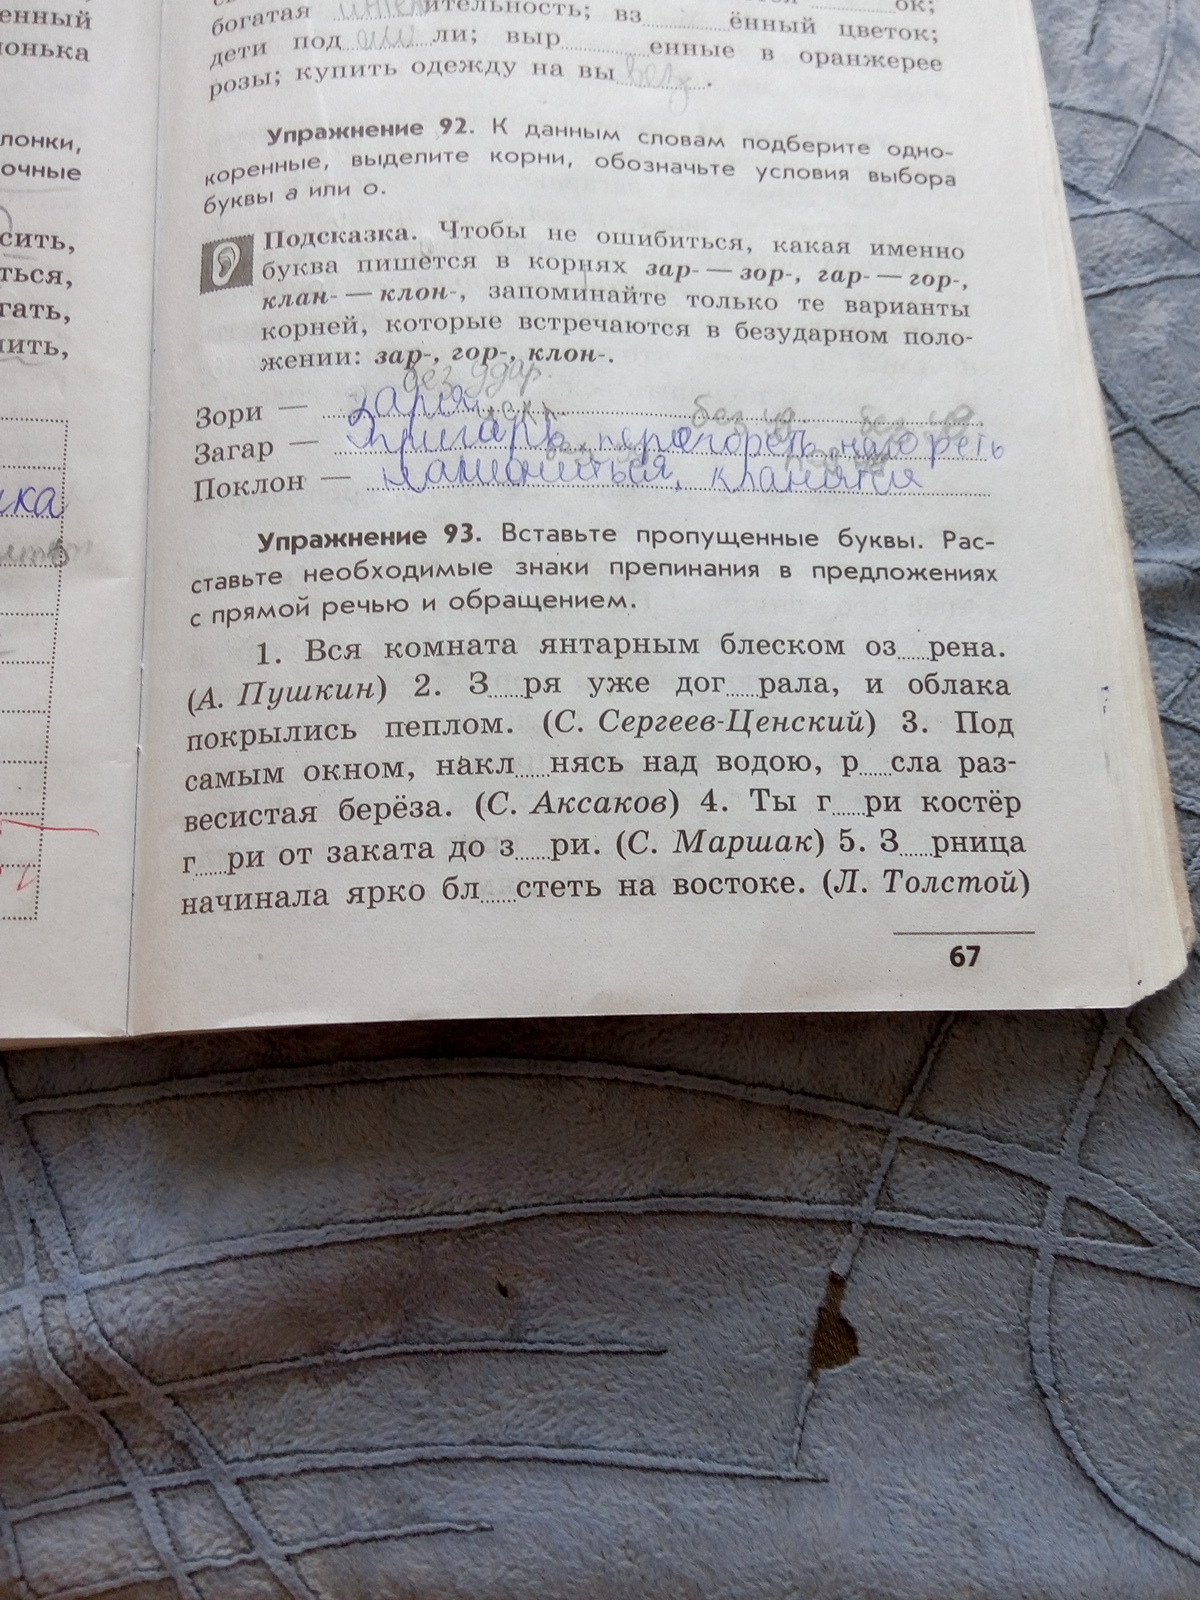 енный
лонки,
очные
сить,
ться,
гать,
ка
ок;
богатая интел ительность; вз ённый цветок;
дети под ли; выр енные в оранжерее
розы; купить одежду на вы .
Упражнение 92. К данным словам подберите одно-
коренные, выделите корни, обозначьте условия выбора
буквы а или о.
Подсказка. Чтобы не ошибиться, какая именно
буква пишется в корнях зар- — зор-, гар- — гор-,
клан- — клон-, запоминайте только те варианты
корней, которые встречаются в безударном поло-
жении: зар-, гор-, клон-.
без удар.
Зори — заря
без уд. без уд.
Загар — Пригарь, перегореть, нагореть
Поклон — наклониться, кланятся
Упражнение 93. Вставьте пропущенные буквы. Рас-
ставьте необходимые знаки препинания в предложениях
с прямой речью и обращением.
1. Вся комната янтарным блеском оз....рена.
(А. Пушкин) 2. З....ря уже дог....рала, и облака
покрылись пеплом. (С. Сергеев-Ценский) 3. Под
самым окном, накл....нясь над водою, р....сла раз-
весистая берёза. (С. Аксаков) 4. Ты г....ри костёр
г....ри от заката до з....ри. (С. Маршак) 5. З....рница
начинала ярко бл....стеть на востоке. (Л. Толстой)
67